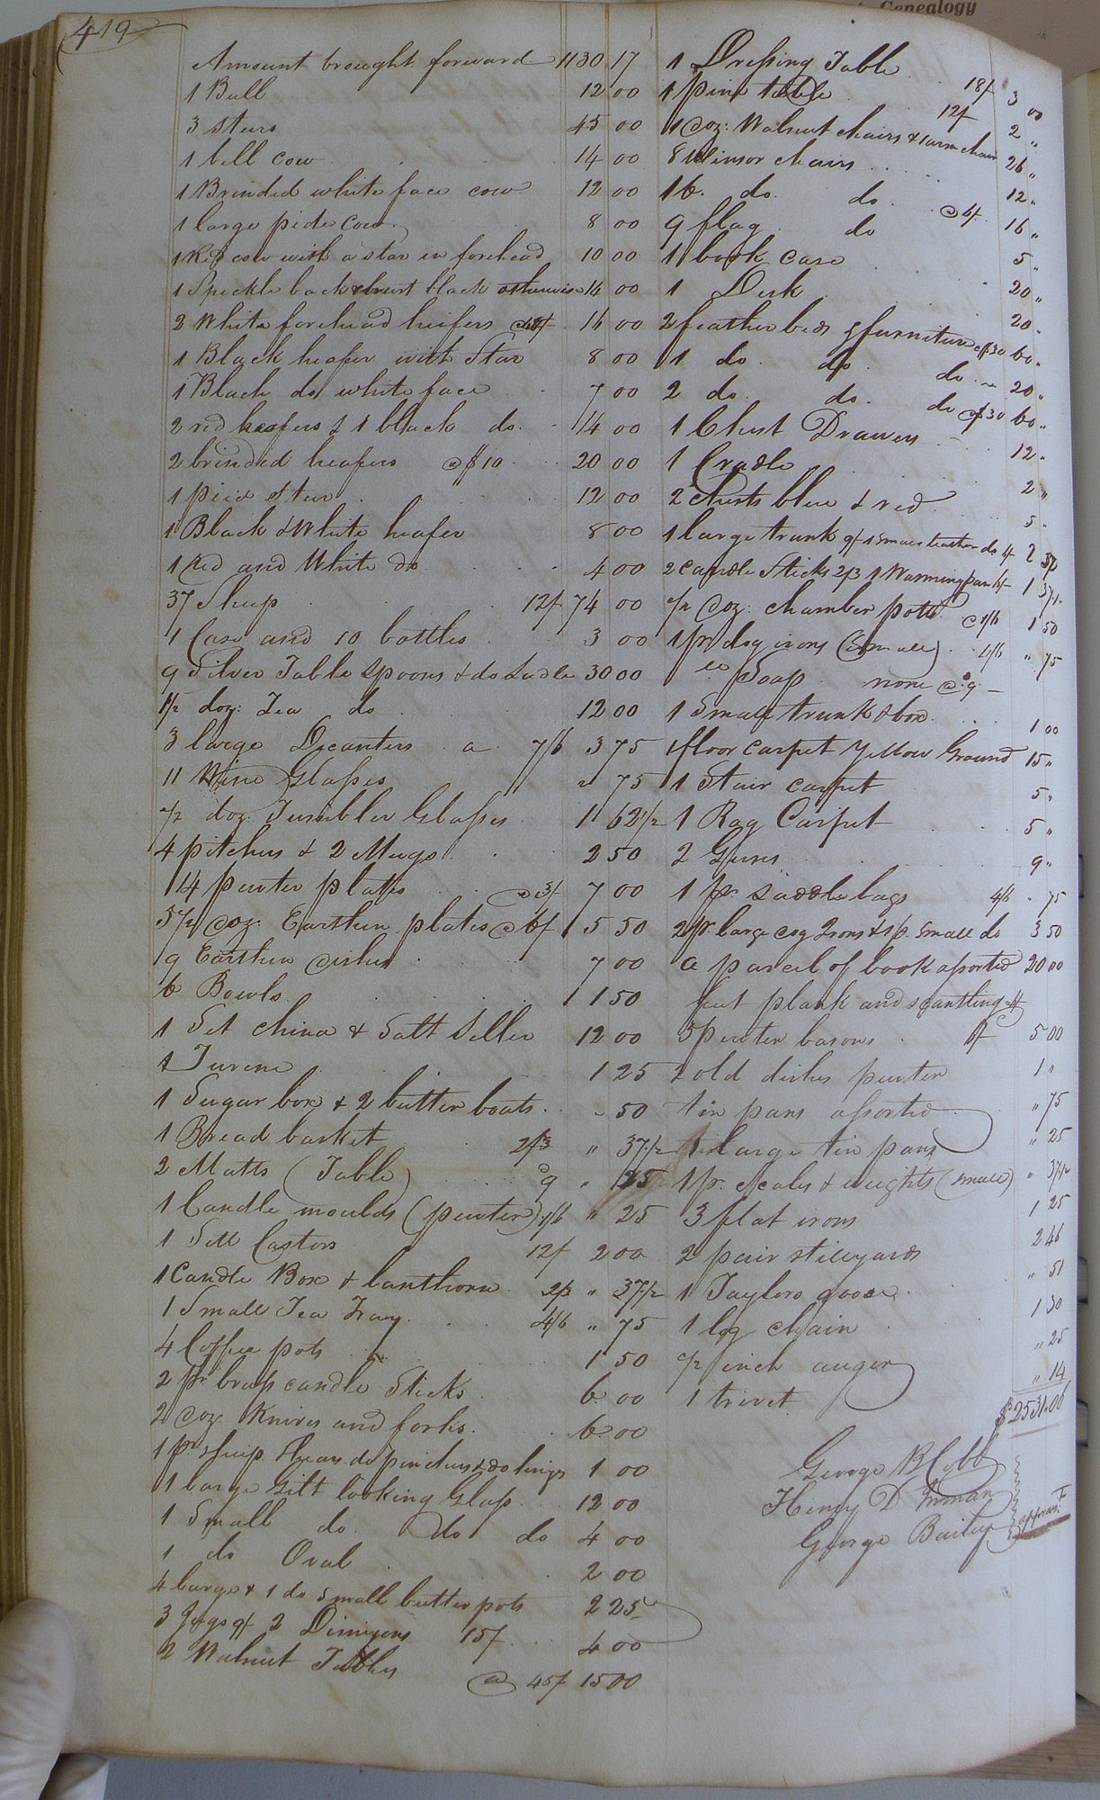 Genealogy
419
Amount brought forward 1130 17
1 Bull 12 00
3 steers 45 00
1 bell cow 14 00
1 Brinded white face cow 12 00
1 large pide cow 8 00
1 Red cow with a star in forehead 10 00
1 Speckle back & brest black otherwise 14 00
2 White forehead heifers @ 48/ 16 00
1 Black heafer with Star 8 00
1 Black do white face 7 00
2 red heafers & 1 black do. 14 00
2 brinded heafers @ $10 20 00
1 pied steer 12 00
1 Black & White heafer 8 00
1 Red and White do 4 00
37 Sheep 12/ 74 00
1 Case and 10 bottles 3 00
9 Silver Table Spoons & do Ladle 30 00
1½ doz: Tea do 12 00
3 large Decanters a 7/6 3 75
11 Wine Glasses " 75
½ doz. Tumbler Glasses 1 62½
4 pitchers & 2 Mugs 2 50
14 pewter plates @ 3/ 7 00
5½ doz. Earthen plates @ 6/ 5 50
9 Earthen dishes 7 00
6 Bowls 1 50
1 Set china & Salt Seller 12 00
1 Tureene 1 25
1 Sugar box & 2 butter boats " 50
1 Bread basket 2/3 " 37½
2 Matts (Table) 9 " 25
1 Candle moulds (pewter) 1/6 " 25
1 Sett Castors 12/ 2 00
1 Candle Box & lanthorn 2/3 " 37½
1 Small Tea Tray 4/6 " 75
4 Coffee pots 1 50
2 pr brass candle Sticks 6 00
2 doz. Knives and forks 6 00
1 pr sheep Shears do pinchers & do tongs 1 00
1 large Gilt looking Glass 12 00
1 Small do. do do 4 00
1 do Oval 2 00
4 large & 1 do small butter pots 2 25
3 Jugs of 2 15/ 4 00
2 Walnut Tables @ 45/ 15 00
1 Dressing Table 18/ 3 00
1 pine table 12/ 2 "
1 doz: Walnut chairs & 1 arm chair 26 "
8 Winsor chairs 12 "
16 do. do. @ 6/ 16 "
9 flag do 5 "
1 book case 20 "
1 Desk 20 "
2 feather beds & furniture @ $30 60 "
1 do. do. do. 20 "
2 do. do. do @ $30 60 "
1 Chest Drawers 12 "
1 Cradle 2 "
2 chests blue & red 5 "
1 large trunk 9/ 1 small leather do 4/ 2
2 candle Sticks 2/3 1 Warming pan 6/ 1 37½
½ doz: chamber pots @ 1/6 1 50
1 pr dog irons (small) 4/6 " 75
Soap none @ 9 —
1 Small trunk & box 1 00
1 floor carpet Yellow Ground 15 "
1 Stair carpet 5 "
1 Rag Carpet 5 "
2 Guns 9 "
1 pr saddle bags 4/6 " 75
2 pr large dog Irons & 1 pr. Small do 3 50
a parcel of book assorted 20 00
feet plank and scantling
3 pewter basons 5 00
2 old dishes pewter 1 "
tin pans assorted " 75
large tin pans " 25
1 pr. scales & weights (small) " 37½
3 flat irons 1 25
2 pair stillyards 2 46
1 Taylors goose " 51
1 log chain 1 50
½ inch auger " 25
1 trivet " 14
$2531.00
George B Cobb
Henry D Inman
George Bailey
appraes.